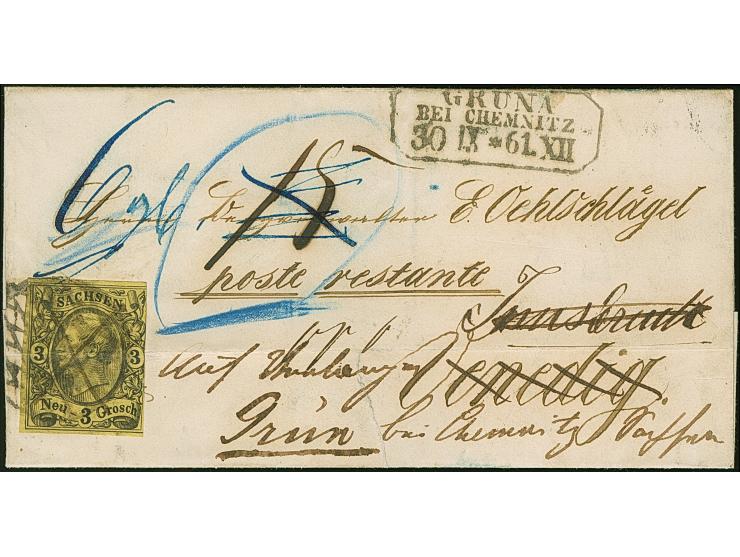 GRÜNA
BEI CHEMNITZ
30 IX *61. XII
6
15
E. Oehlschlägel
poste restante
Innsbruck
Venedig.
Auf
Grün bei Chemnitz Sachsen
SACHSEN
3 3
Neu 3 Grosch